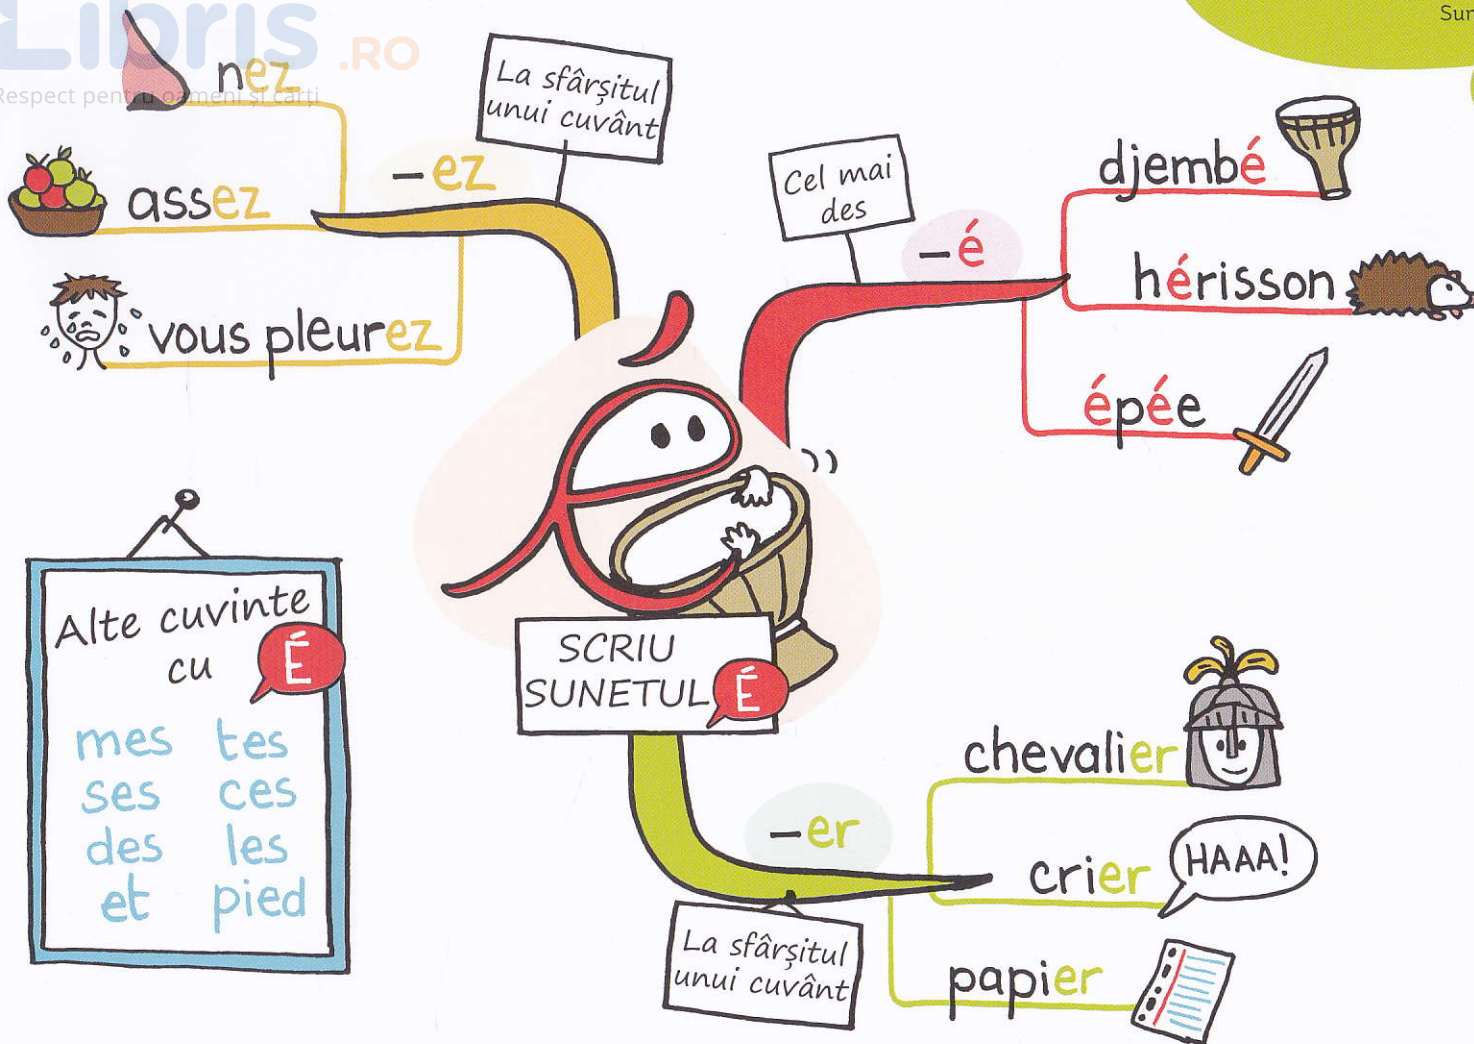 Libris .RO
Respect pentru oameni și cărți
Sun
nez
assez
vous pleurez
–ez
La sfârșitul
unui cuvânt
Cel mai
des
–é
djembé
hérisson
épée
Alte cuvinte
cu É
mes tes
ses ces
des les
et pied
SCRIU
SUNETUL É
–er
La sfârșitul
unui cuvânt
chevalier
crier
HAAA!
papier